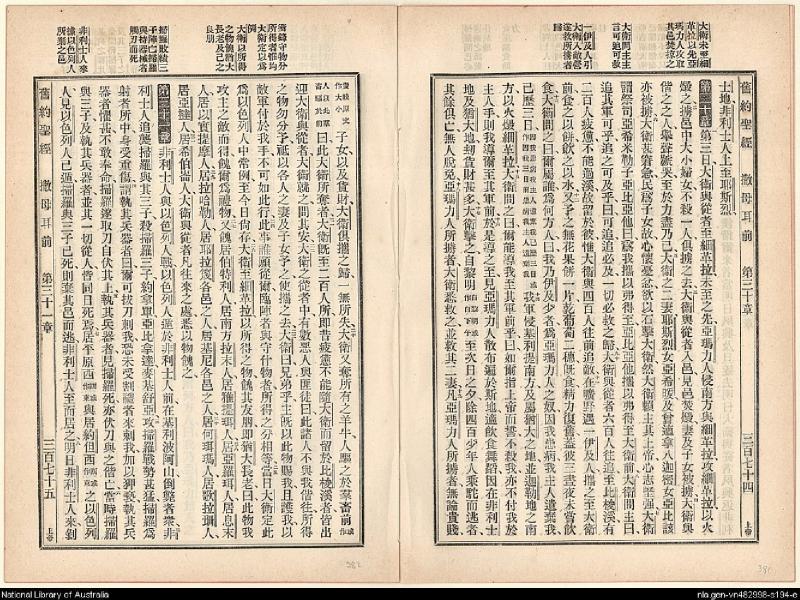 大衛未至細
革拉以先亞
瑪力人攻取
其邑焚掠之
大衛問主主
言可追可救
一伊及人引
大衛入敵營
遂救所擄者
舊約聖經 撒母耳前 第三十章 三百七十四 上帝
士地非利士人上至耶斯烈
第三十章 第三日大衛與從者至細革拉未至之先亞瑪力人侵南方與細革拉攻細革拉以火
燬之擄邑中大小婦女不殺一人俱擄之去大衛與從者入邑見邑焚燬妻及子女被擄大衛與
偕之之人舉聲號哭至於力盡乃已大衛之二妻耶斯烈女亞希暖及曾適拿八迦密女亞比該
亦被擄大衛甚窘急民為子女故心懷憂忿欲以石擊大衛然大衛賴主其上帝心志堅強大衛
謂祭司亞希米勒子亞比亞他曰為我攜以弗得至亞比亞他攜以弗得至大衛前大衛問主曰
追其軍可乎追之可及乎曰可追追必及一切必救之歸大衛與從者六百人往追至比梭溪有
二百人疲憊不能過溪故留於彼惟大衛與四百人往前追敵在曠野遇一伊及人攜之至大衛
前食之以餅飲之以水又予之無花果餅一片乾葡萄二穗既食精力復舊蓋彼三晝夜未嘗飲
食大衛問之曰爾屬誰為何方人曰我乃伊及少者為亞瑪力人之奴因我患病我主人遺棄我
己歷三日
我軍侵基利提南方及屬猶大之地並迦勒地之南
方以火燬細革拉大衛問之曰爾能導我至其軍前乎曰如爾指上帝而誓不殺我亦不付我於
主人手則我導爾至其軍前於是導之至見亞瑪力人散布遍於斯地適飲食舞蹈因在非利士
地及猶大地刦貨財甚多大衛擊之自黎明至次日之夕除四百少年人乘駝而逃者
其餘俱亡無人脫免亞瑪力人所擄者大衛悉救之並救其二妻凡亞瑪力人所擄者無論貴賤
輜重守物分
所得者惟均
大衛定以為
例
大衛以所得
之物餽猶大
之長老及己之
良朋
掃羅敗績三
子陣亡掃羅
與持器械者
觸刃而死
非利士人來
據以色列人
所棄之邑
子女以及貨財大衛俱攜之歸一無所失大衛又奪所有之羊牛人驅之於羣畜前
曰此大衛所奪者大衛既至二百人所即昔疲憊不能隨大衛而留於比梭溪者皆出
迎大衛與從者大衛就之問其安大衛之從者中有數惡人與匪徒曰此諸人不與我偕往所得
之物勿分予祗以各人之妻及子女予之使攜之去大衛曰兄弟乎主既以此物賜我且護我以
敵軍付於我手不可如此行此事誰願從爾臨陣者與守什物者所得之分相等當日大衛定此
為以色列人中常例至今日尚存大衛至細革拉以所得之物餽其友朋即猶大長老曰此物我
攻主之敵而得餽爾為禮物又餽居伯特利人居南方拉末人居雅提珥人居亞羅珥人居息末
人居以實提摩人居拉哈勒人居耶拉篾各邑之人居基尼各邑之人居何珥瑪人居歌拉珊人
居亞撻人居希伯崙人大衛與從者凡往來之處悉以物餽之
第三十一章 非利士人與以色列人戰以色列人逃於非利士人前在基利波阿山倒斃者衆非
利士人追襲掃羅與其三子殺掃羅三子約拿單亞比拿達麥基舒亞攻掃羅戰勢甚猛掃羅為
射者所中身受重傷謂執其兵器者曰爾可拔刀刺我恐未受割禮者來刺我加以狎褻執其兵
器者懼甚不敢奉命掃羅遂取刀自伏其上執其兵器者見掃羅死亦伏刀與之偕亡當時掃羅
與三子及執其兵器者並其一切從人皆同日死焉居平原西與居約但西之以色列
人見以色列人已遁掃羅與三子已死則棄其邑而逃非利士人至而居之明日非利士人來剝
舊約聖經 撒母耳前 第三十一章 三百七十五 上帝
381
382
National Library of Australia
nla.gen-vn482998-s194-e